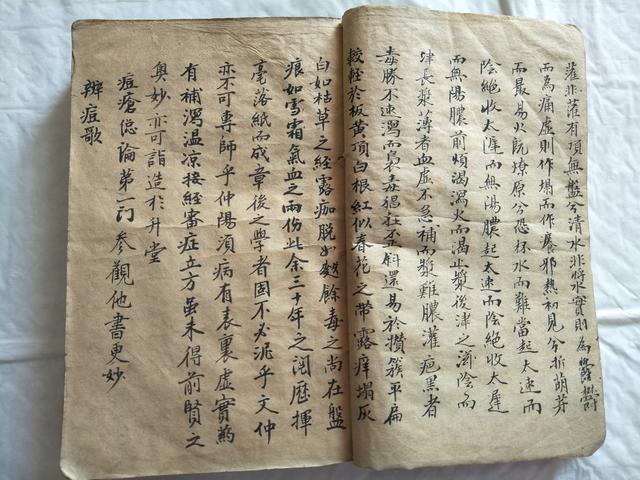 灌非灌有頂無盤兮清水非漿實則為鬱
而為痛虛則作塌而作癢邪熱初見兮折萌芽
而最易火既燎原兮恐杯水而難當起太速而
陰絶收太遲而無陽膿起太速而陰絶收太遲
而無陽膿前煩渴瀉火而渴止漿後津之滋陰而
津長漿薄者血虛不急補而漿難膿灌疤黑者
毒勝不速瀉而裊毒
還易於攢簇平扁
較輕於板黃頂白根紅似春花之帶露痒塌灰
白如枯草之經露痂脫
餘毒之尚在盤
痕如雪霜氣血之兩份此余三十年之閱歷揮
毫落紙而成章後之學者固不必泥乎文仲
亦不可專師乎仲陽須病有表裏虛實藥
有補瀉温凉按經審症立方虽未得前賢之
奧妙亦可詣造於升堂
痘瘡总論第一门 參觀他書更妙
辨痘歌